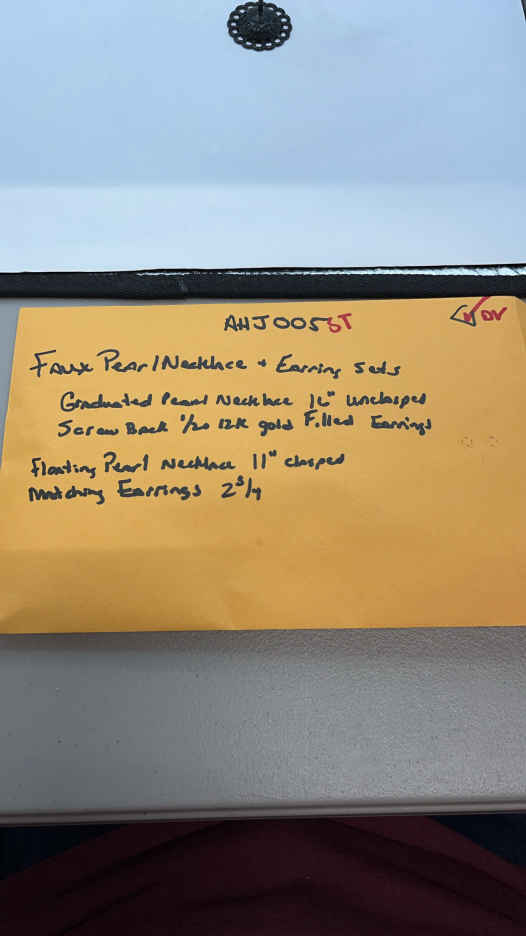 AHJ005ST
OV
Faux Pearl Necklace + Earring Sets
Graduated Pearl Necklace 16" unclasped
Screw Back 1/20 12K gold Filled Earrings
Floating Pearl Necklace 11" clasped
Matching Earrings 2 3/4